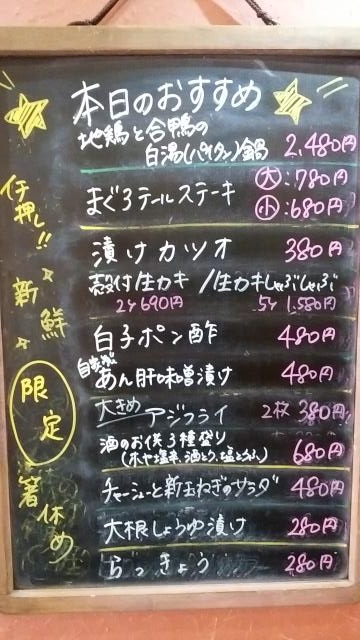 本日のおすすめ
地鶏と合鴨の
白湯(パイタン)鍋 2,480円
まぐろテールステーキ 大:780円
小:680円
漬けカツオ 380円
殻付/生カキ /生カキしゃぶしゃぶ
2ヶ690円 5ヶ1,580円
白子ポン酢 480円
自家製
あん肝味噌漬け 480円
大きめ アジフライ 2枚 380円
酒のお供3種盛り
(ホヤ塩辛、酒とう、塩とうふ) 680円
チャーシューと新玉ねぎのサラダ 480円
大根しょうゆ漬け 280円
らっきょう 280円
イチ押し!!
新鮮
限定
箸休め